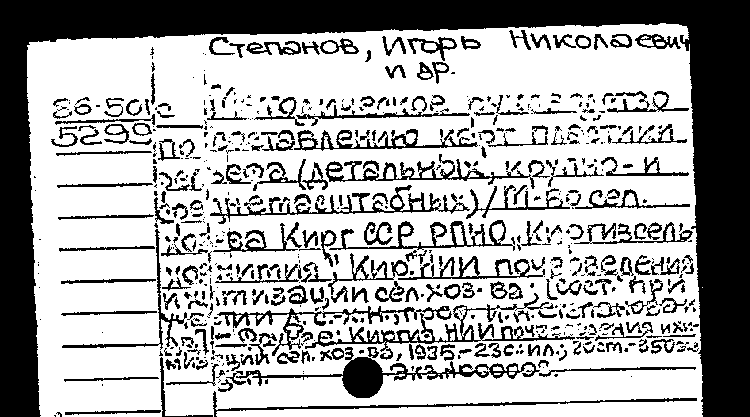 Степанов, Игорь Николаевич
и др.
86-501с Методическое руководство
5299 по составлению карт пластики
рельефа (детальных, крупно- и
среднемасштабных) / М-во сел.
хоз-ва Кирг ССР, РПНО „Киргизсель
хозхимия", Кир. НИИ почвоведения
и химизации сел. хоз-ва; [Сост. при
участии д. с.-х. н., проф. И. Н. Степанова и
др.] - Фрунзе: Киргиз. НИИ почвоведения и хи-
мизации сел. хоз-ва, 1985. - 23с.: ил.; 20см. - 350
экз.